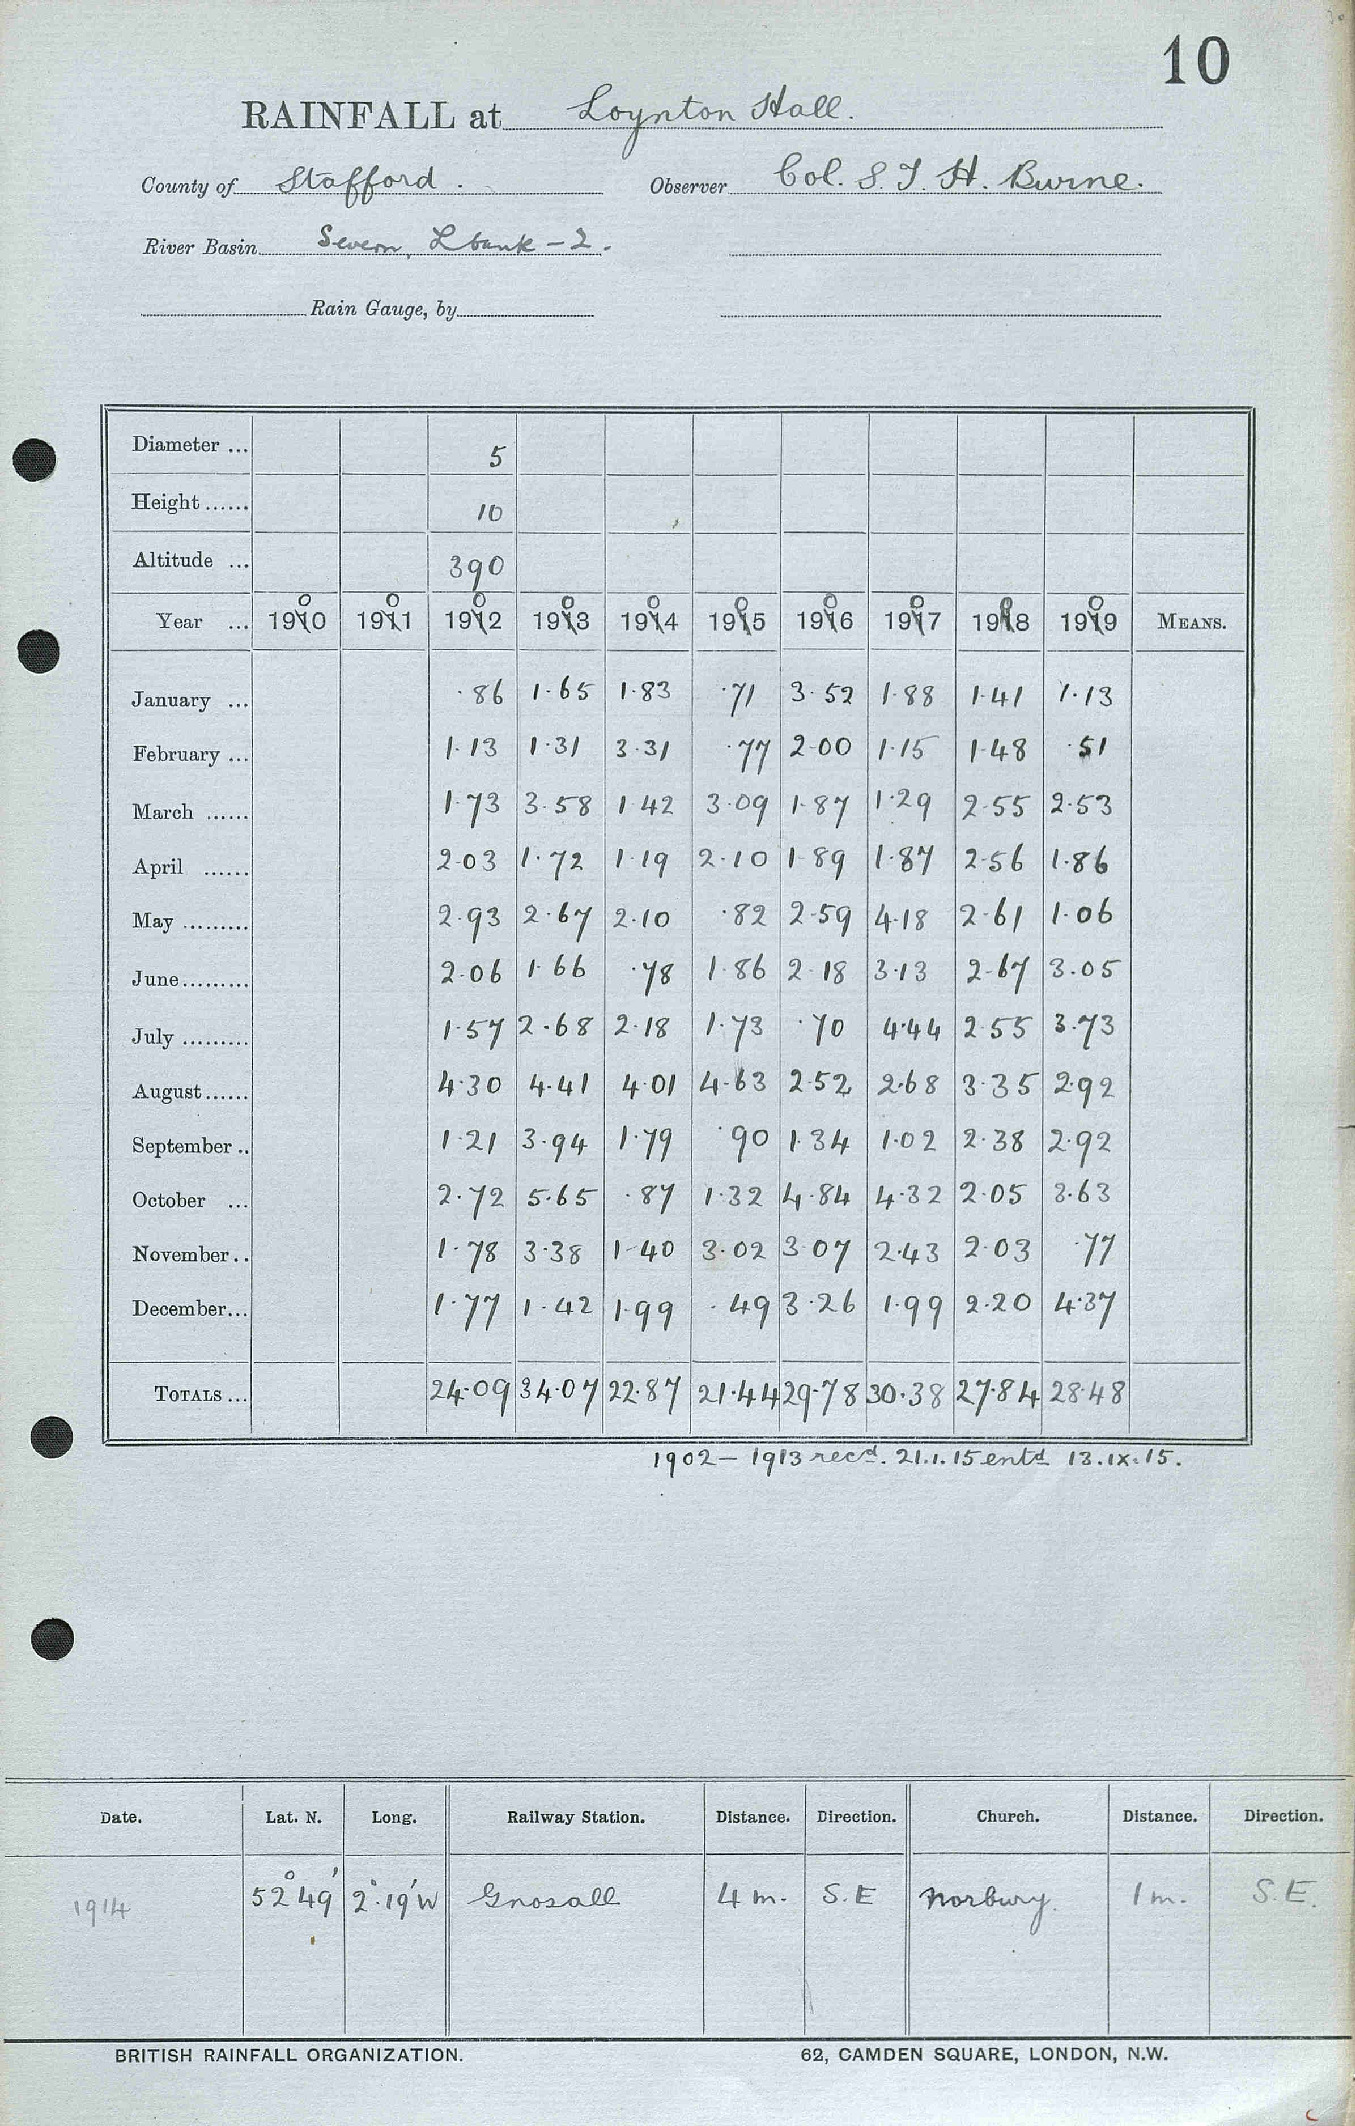 10
RAINFALL at Loynton Hall.
County of Stafford. Observer Col. S. T. H. Burne.
River Basin Severn, L bank – 2.
Rain Gauge, by
Diameter ... 5
Height ...... 10
Altitude ... 390
Year ... 1900 1901 1902 1903 1904 1905 1906 1907 1908 1909 MEANS.
January ... ·86 1·65 1·83 ·71 3·52 1·88 1·41 1·13
February ... 1·13 1·31 3·31 ·77 2·00 1·15 1·48 ·51
March ...... 1·73 3·58 1·42 3·09 1·87 1·29 2·55 2·53
April ...... 2·03 1·72 1·19 2·10 1·89 1·87 2·56 1·86
May ......... 2·93 2·67 2·10 ·82 2·59 4·18 2·61 1·06
June......... 2·06 1·66 ·78 1·86 2·18 3·13 2·67 3·05
July ......... 1·57 2·68 2·18 1·73 ·70 4·44 2·55 3·73
August...... 4·30 4·41 4·01 4·63 2·52 2·68 3·35 2·92
September .. 1·21 3·94 1·79 ·90 1·34 1·02 2·38 2·92
October ... 2·72 5·65 ·87 1·32 4·84 4·32 2·05 3·63
November.. 1·78 3·38 1·40 3·02 3·07 2·43 2·03 ·77
December... 1·77 1·42 1·99 ·49 3·26 1·99 2·20 4·37
TOTALS ... 24·09 34·07 22·87 21·44 29·78 30·38 27·84 28·48
1902 – 1913 recd. 21.1.15 entd 13.ix.15.
Date. Lat. N. Long. Railway Station. Distance. Direction. Church. Distance. Direction.
1914 52°49' 2°·19'W Gnosall 4 m. S.E Norbury. 1 m. S.E.
BRITISH RAINFALL ORGANIZATION. 62, CAMDEN SQUARE, LONDON, N.W.